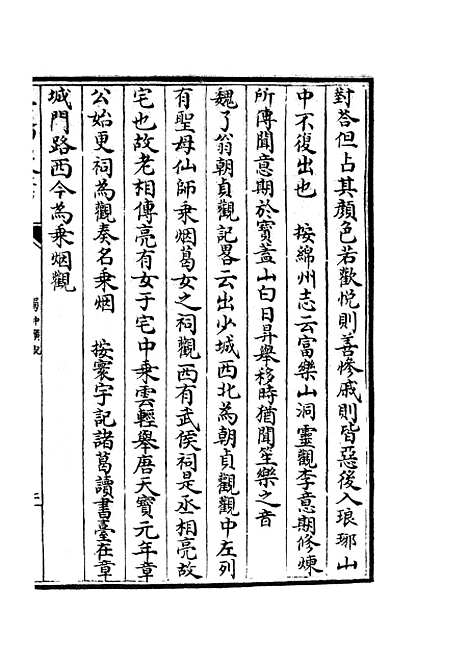 對荅但占其顔色若歡悦則善慘戚則皆惡後入琅琊山
中不復出也　按綿州志云富樂山洞靈觀李意期修煉
所傳聞意期於寳蓋山白日昇舉移時猶聞笙樂之音
魏了翁朝貞觀記畧云出少城西北為朝貞觀觀中左列
有聖母仙師乘烟葛女之祠觀西有武侯祠是丞相亮故
宅也故老相傳亮有女于宅中乗雲輕舉唐天寶元年章
公始更祠為觀奏名乗烟　按寰宇記諸葛讀書臺在章
城門路西今為乗烟觀
蜀中廣記